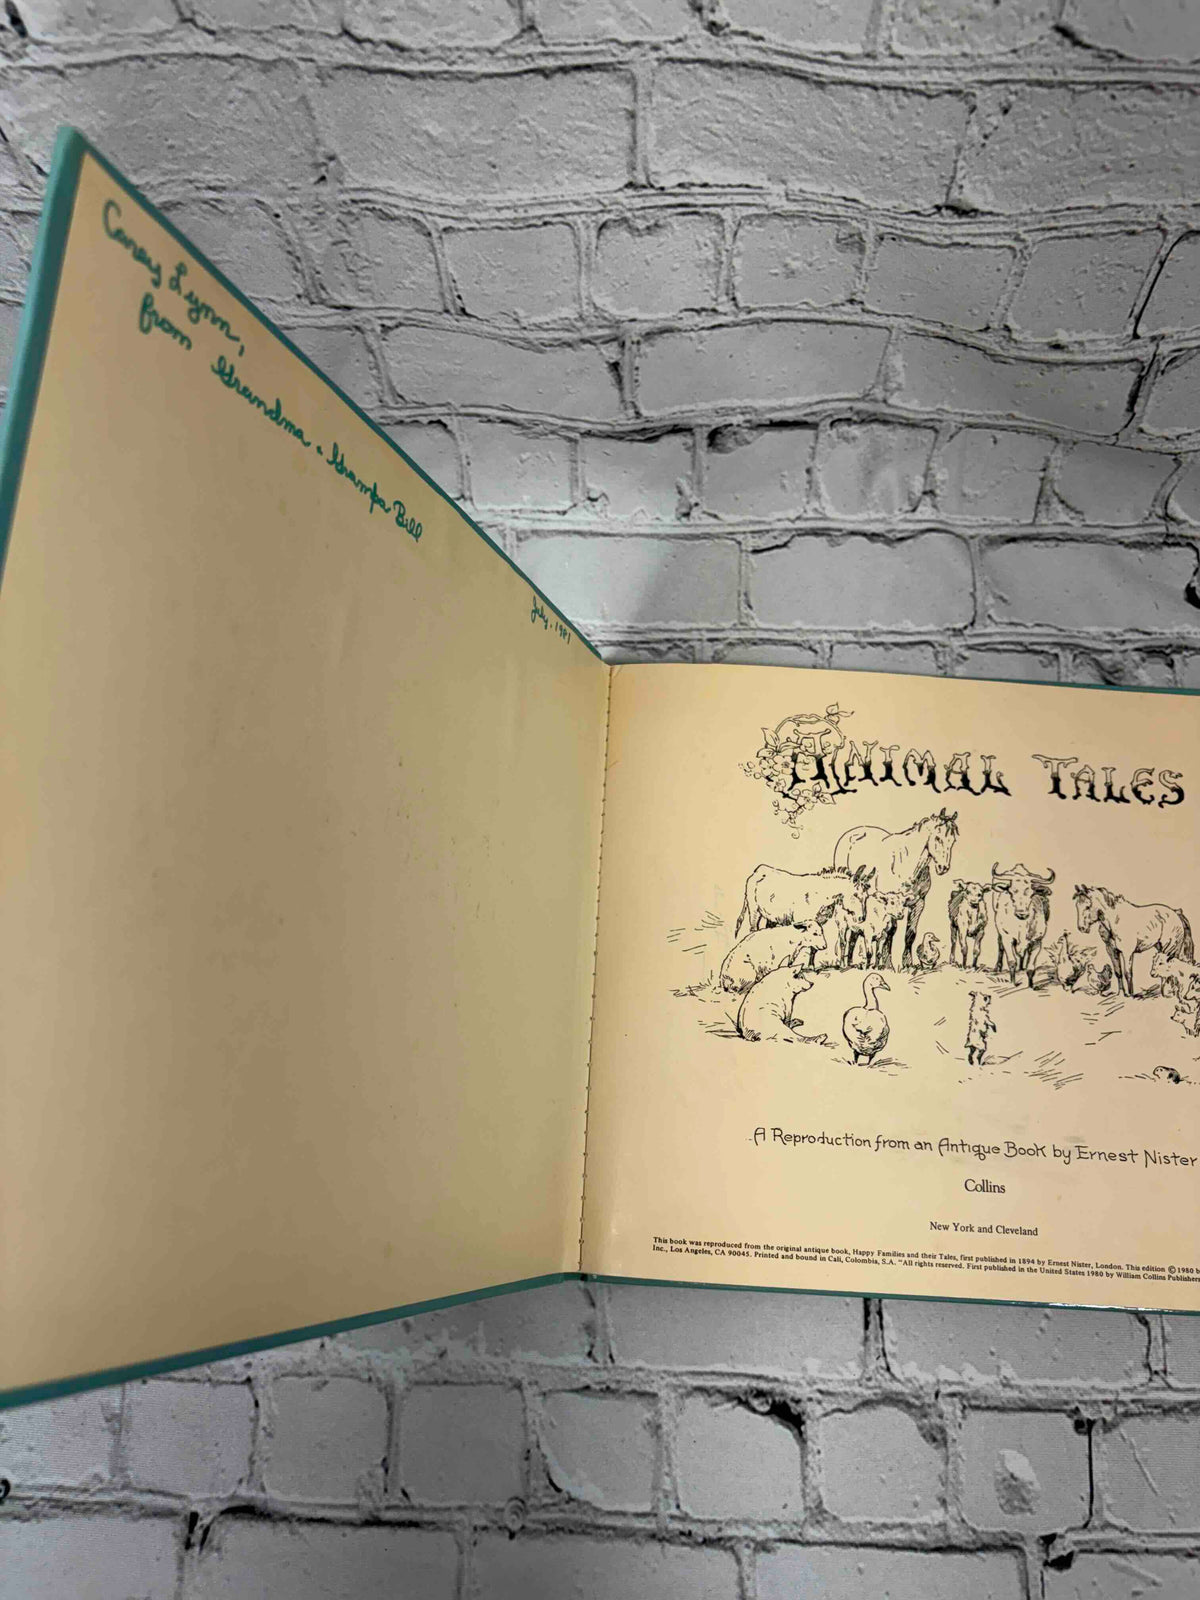 Corey Lynn,
from Grandma & Grampa Bill
July, 1981
ANIMAL TALES
A Reproduction from an Antique Book by Ernest Nister
Collins
New York and Cleveland
This book was reproduced from the original antique book, Happy Families and their Tales, first published in 1894 by Ernest Nister, London. This edition © 1980 b
Inc., Los Angeles, CA 90045. Printed and bound in Cali, Colombia, S.A. "All rights reserved. First published in the United States 1980 by William Collins Publishers